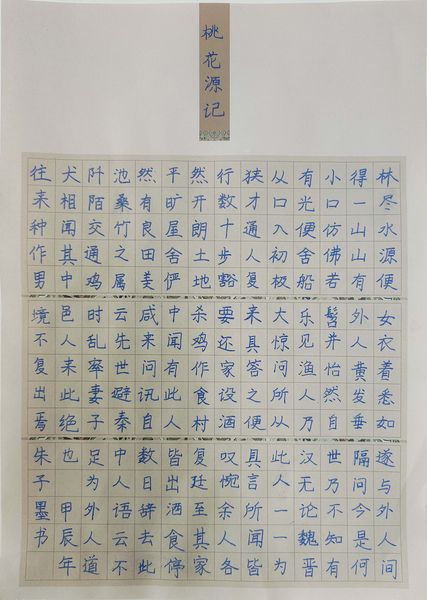 桃花源记
林尽水源便
得一山山有
小口仿佛若
有光便舍船
从口入初极
狭才通人复
行数十步豁
然开朗土地
平旷屋舍俨
然有良田美
池桑竹之属
阡陌交通鸡
犬相闻其中
往来种作男
女衣着悉如
外人黄发垂
髫并怡然自
乐见渔人乃
大惊问所从
来具答之便
要还家设酒
杀鸡作食村
中闻有此人
咸来问讯自
云先世避秦
时乱率妻子
邑人来此绝
境不复出焉
遂与外人间
隔问今是何
世乃不知有
汉无论魏晋
此人一一为
具言所闻皆
叹惋余人各
复廷至其家
皆出酒食停
数日辞去此
中人语云不
足为外人道
也 甲辰年
朱子墨书